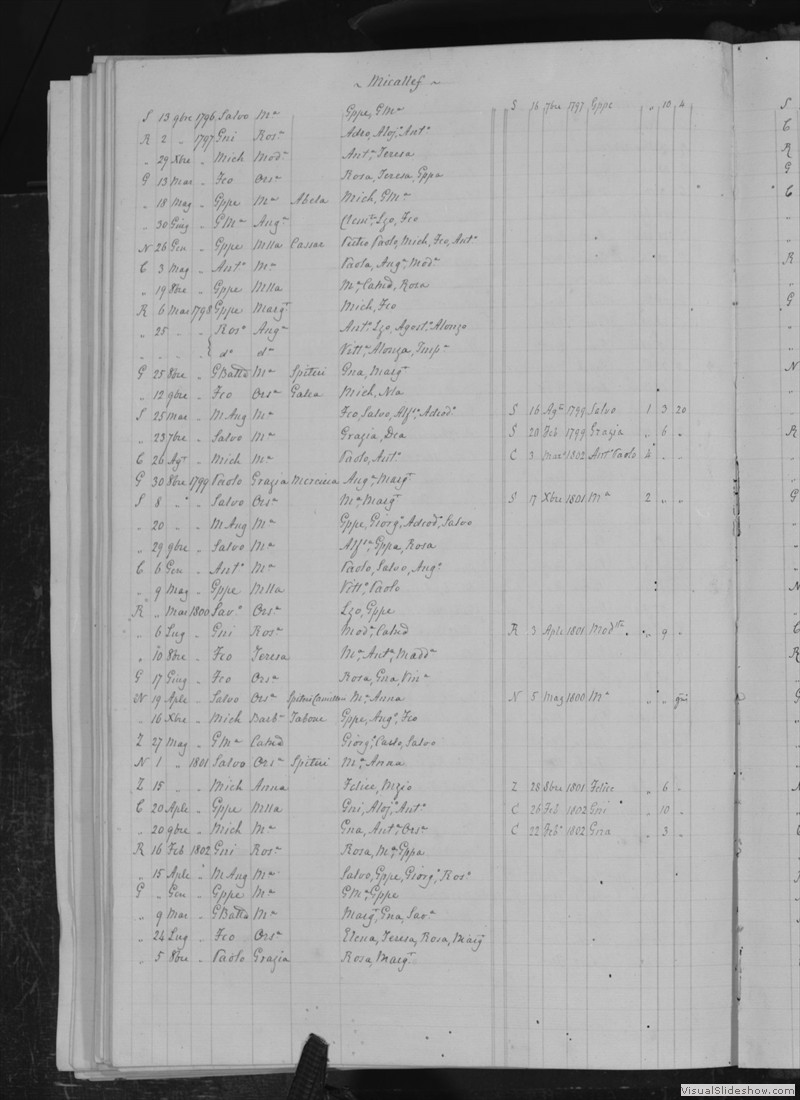 ~ Micallef ~
S 13 9bre 1796 Salvo Ma Gppe, GMa S 16 7bre 1797 Gppe " 10 4
R 2 " 1797 Gni Rosa Adeo, Aloja, Anto
" 29 Xbre " Mich Moda Anta, Teresa
G 13 Mar " Fco Orsa Rosa, Teresa, Gppa
" 18 Mag " Gppe Ma Abela Mich, GMa
" 30 Giug " GMa Anga Clemte, Lzo, Fco
N 26 Gen " Gppe Mlla Cassar Pietro Paolo, Mich, Fco, Anto
C 3 Mag " Anto Ma Paola, Anga, Moda
" 19 8bre " Gppe Mlla Ma, Catnd, Rosa
R 6 Mar 1798 Gppe Margt Mich, Fco
" 25 " " Roso Anga Anto, Lzo, Agosto, Alonzo
" " " " do da Vitta, Alonza, Impa
G 25 8bre " GBatta Ma Spiteri Gna, Margt
" 12 9bre " Fco Orsa Galea Mich, Nla
S 25 Mar " M Ang Ma Fco, Salvo, Alfso, Adeodo S 16 Agt 1799 Salvo 1 3 20
" 23 7bre " Salvo Ma Grazia, Dea S 20 Feb 1799 Grazia " 6 "
C 26 Agt " Mich Ma Paolo, Anto C 3 Marzo 1802 Anto Paolo 4 " "
G 30 8bre 1799 Paolo Grazia Mercieca Anga, Margt
S 8 " " Salvo Orsa Ma, Margt S 17 Xbre 1801 Ma 2 " "
" 20 " " M Ang Ma Gppe, Giorgo, Adeodo, Salvo
" 29 9bre " Salvo Ma Alfsa, Gppa, Rosa
C 6 Gen " Anto Ma Paolo, Salvo, Ango
" 9 Mag " Gppe Mlla Vitto, Paolo
R " Mar 1800 Savo Orsa Lzo, Gppe
" 6 Lug " Gni Rosa Moda, Catnd R 3 Aple 1801 Modta " 9 "
" 10 8bre " Fco Teresa Ma, Anta, Madda
G 17 Giug " Fco Orsa Rosa, Gna, Vina
N 19 Aple " Salvo Orsa Spiteri Ma, Anna N 5 Mag 1800 Ma " "
" 16 Xbre " Mich Barba Tabone Gppe, Ango, Fco
Z 27 Mag " GMa Catnd Giorgo, Carlo, Salvo
N 1 " 1801 Salvo Orsa Spiteri Ma, Anna
Z 15 " " Mich Anna Felice, Mzio Z 28 8bre 1801 Felice " 6 "
C 20 Aple " Gppe Mlla Gni, Alojo, Anto C 26 Feb 1802 Gni " 10 "
" 20 9bre " Mich Ma Gna, Anta, Orsa C 22 Febo 1802 Gna " 3 "
R 16 Feb 1802 Gni Rosa Rosa, Ma, Gppa
" 15 Aple " M Ang Ma Salvo, Gppe, Giorgo, Roso
G " Gen " Gppe Ma GMa, Gppe
" 9 Mar " GBatta Ma Margt, Gna, Savo
" 24 Lug " Fco Orsa Elena, Teresa, Rosa, Margt
" 5 8bre " Paolo Grazia Rosa, Margt
VisualSlideshow.com